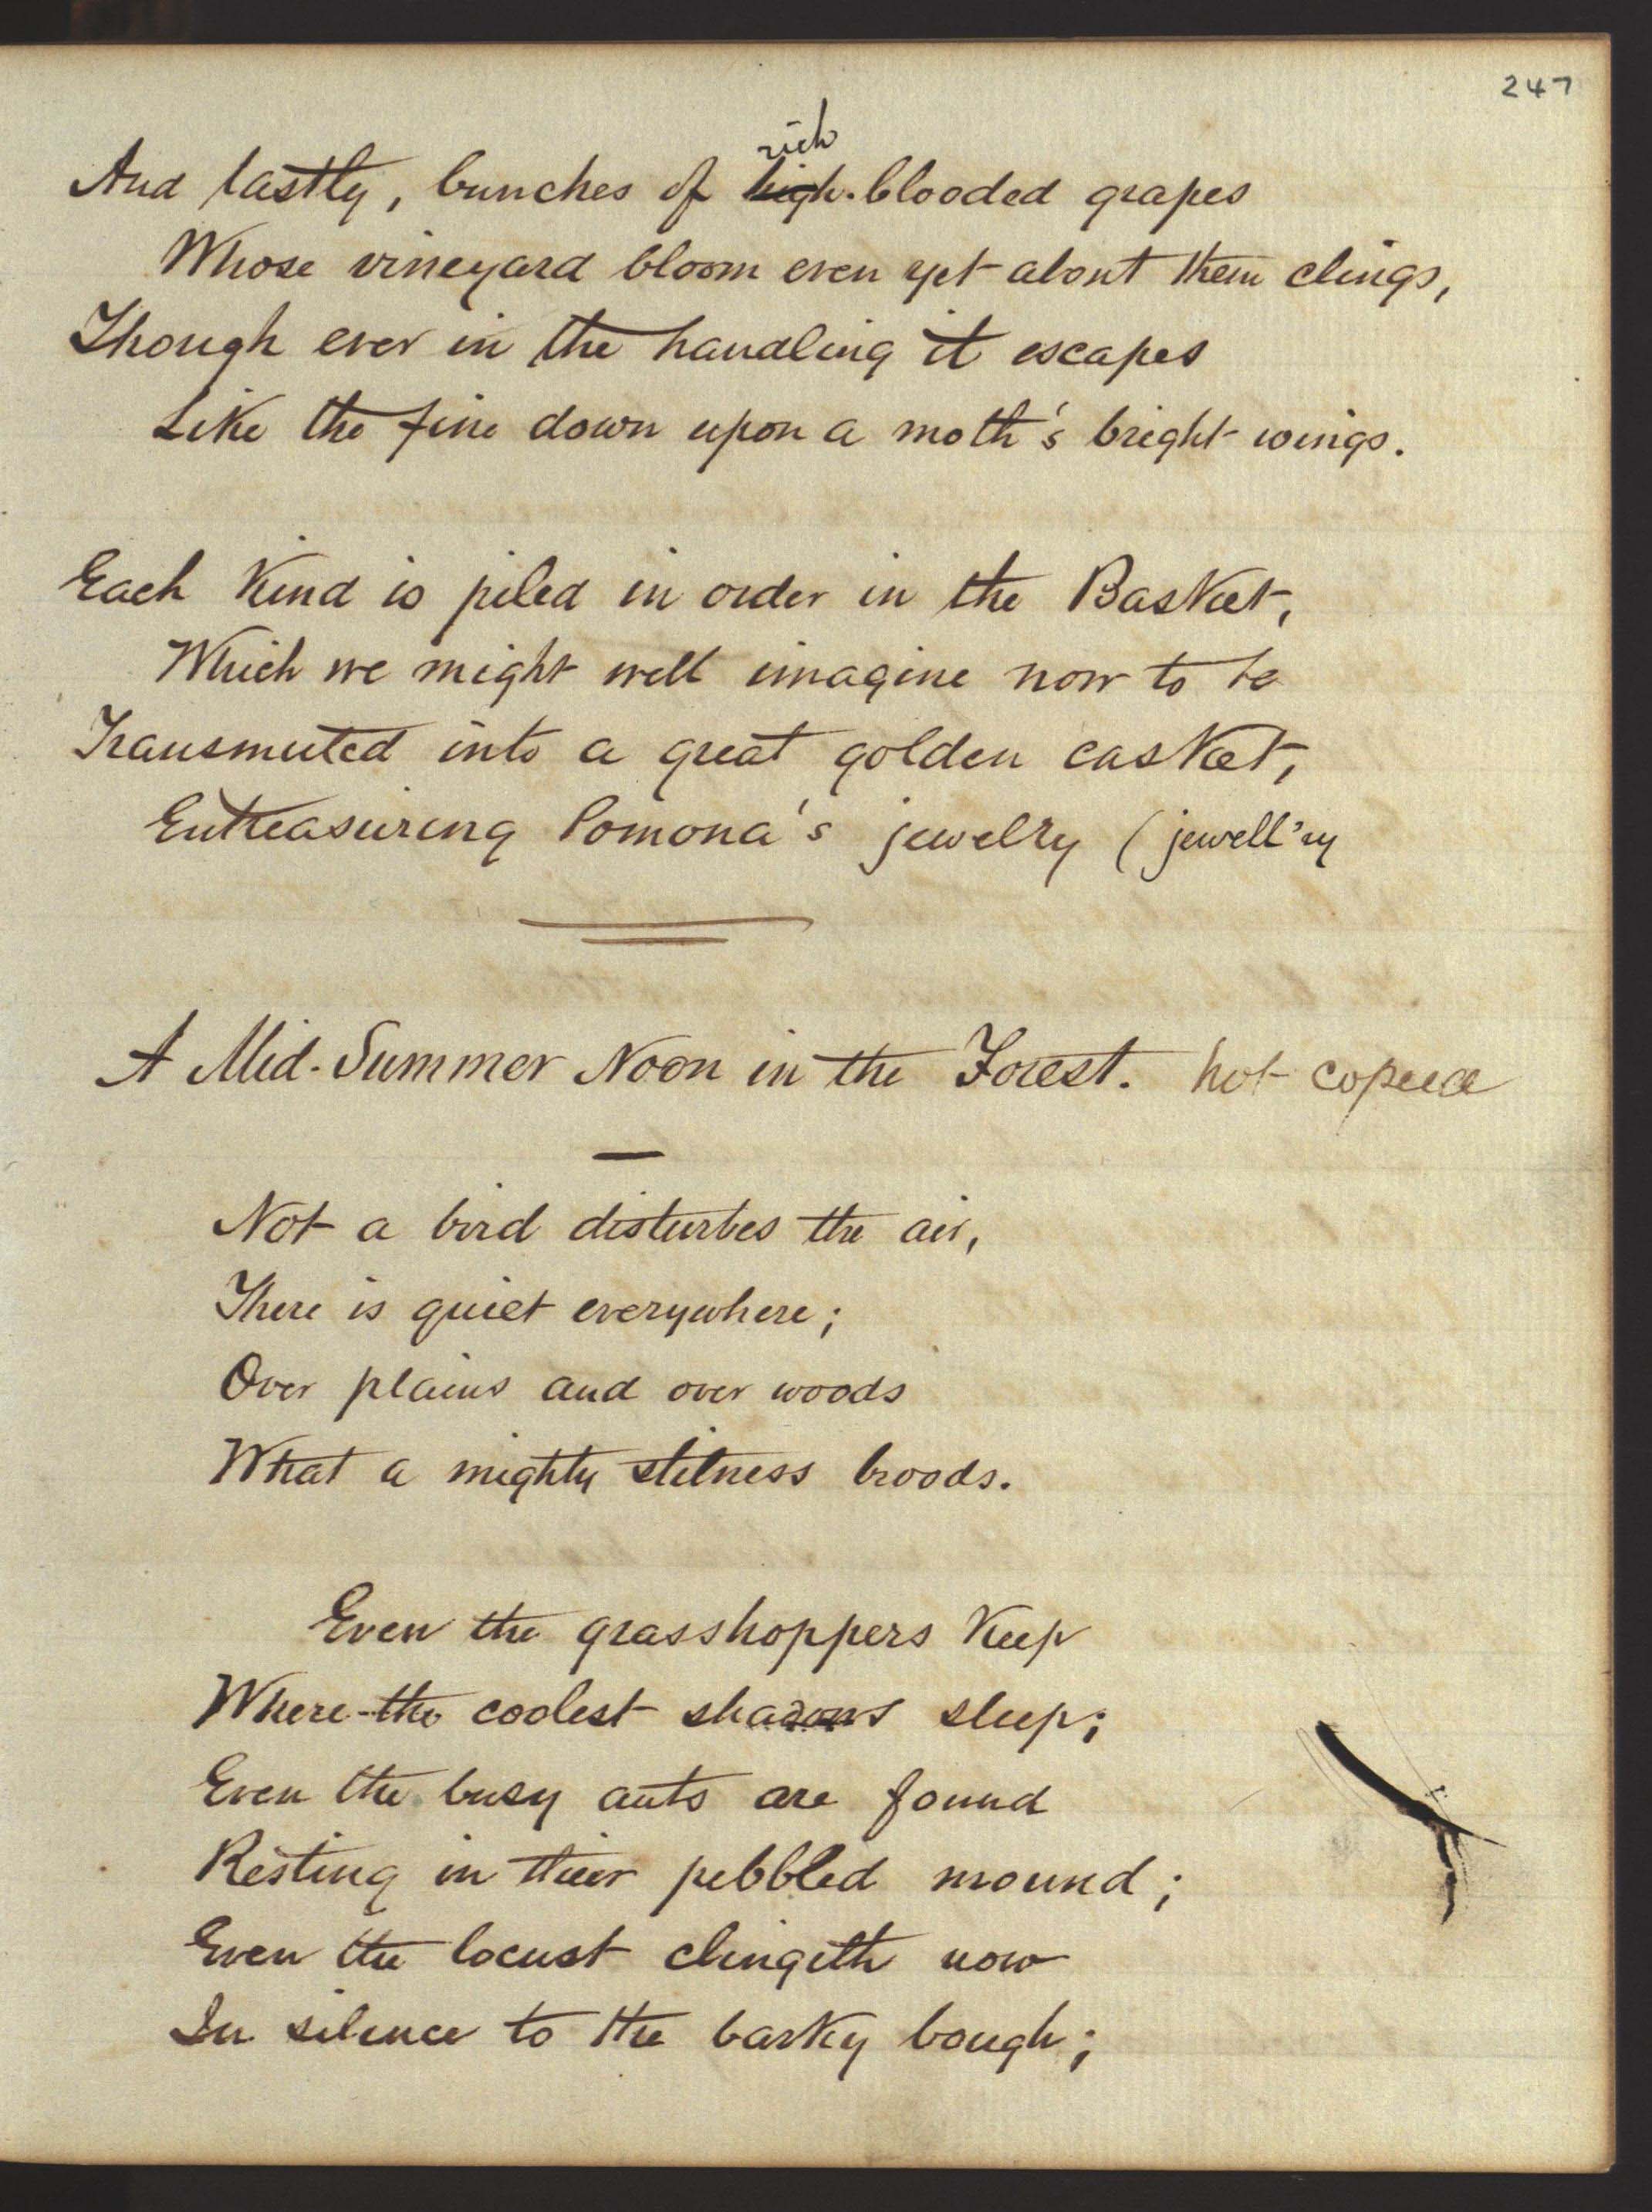 247
And lastly, bunches of rich high-blooded grapes
Whose vineyard bloom even yet about them clings,
Though ever in the handling it escapes
Like the fine down upon a moth's bright wings.
Each Kind is piled in order in the Basket,
Which we might well imagine now to be
Transmuted into a great golden casket,
Entreasuring Pomona's jewelry (jewell'ry
A Mid-Summer Noon in the Forest. not copied
Not a bird disturbes the air,
There is quiet everywhere;
Over plains and over woods
What a mighty stilness broods.
Even the grasshoppers Keep
Where the coolest shadows sleep;
Even the busy ants are found
Resting in their pebbled mound;
Even the locust clingeth now
In silence to the barky bough;